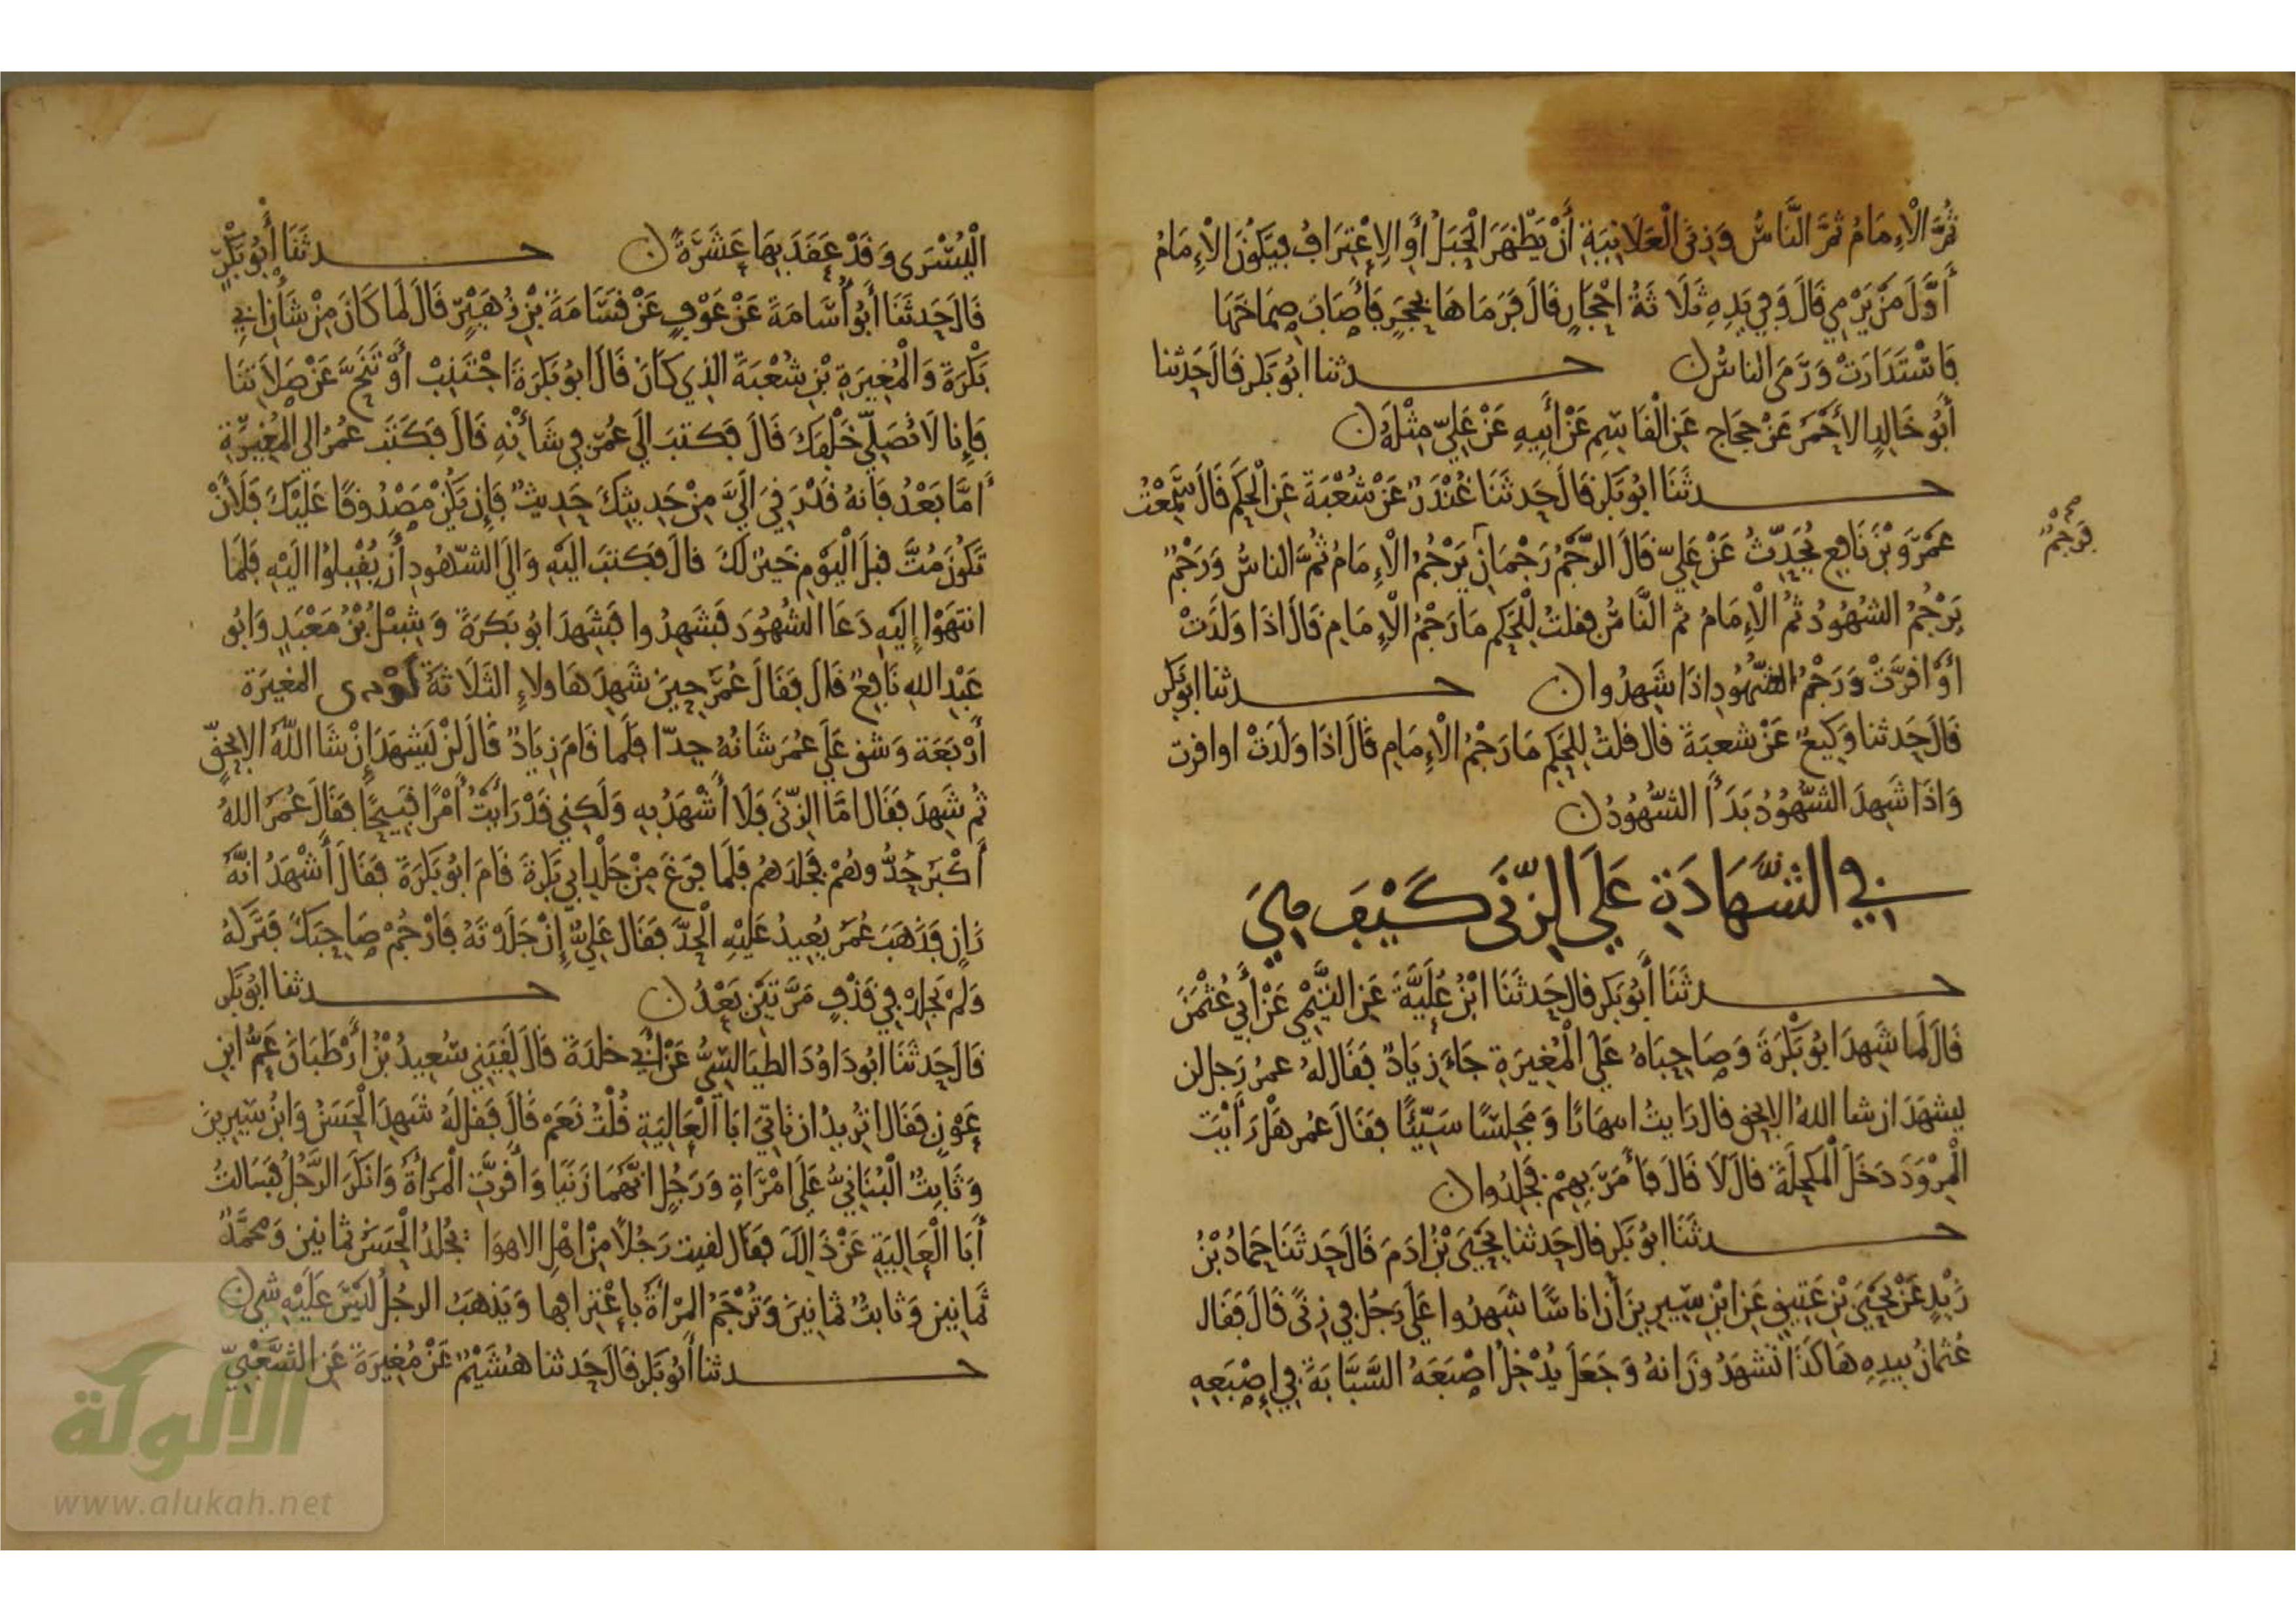 ثُمَّ الْإِمَامُ ثُمَّ النَّاسُ وَزِنَى الْعَلَانِيَةِ أَنْ يَظْهَرَ الْحَبَلُ أَوِ الِاعْتِرَافُ فَيَكُونُ الْإِمَامُ
أَوَّلَ مَنْ يَرْمِي قَالَ وَفِي يَدِهِ ثَلَاثَةُ أَحْجَارٍ قَالَ فَرَمَاهَا بِحَجَرٍ فَأَصَابَ صِمَاخَهَا
فَاسْتَدَارَتْ وَرَمَى الناسُ ن حـدثنا ابُو بَكر قالَ حَدثنا
أَبُو خَالِدٍ الأَحْمَرَ عَنْ حَجاج عَنِ الْقَاسِمِ عَنْ أَبِيهِ عَنْ عَلِيّ مِثْلَهُ ن
حـدثَنَا ابُو بَكر قَالَ حَدثَنَا غُنْدَرٌ عَنْ شُعْبَةَ عَنِ الْحَكَمِ قَالَ سَمِعْتُ
عَمْرَو بْنَ نَافِعٍ يُحَدِّثُ عَنْ عَلِيّ قَالَ الرَّجْمُ رَجْمَانِ يَرْجُمُ الْإِمَامُ ثُمَّ الناسُ وَرَجْمٌ
فَرَجْمٌ
يَرْجُمُ الشهُودُ ثُمَّ الْإِمَامُ ثم النَّاسُ فقلتُ لِلْحَكَمِ مَا رَجْمُ الْإِمَامِ قَالَ اذَا وَلَدَتْ
أَوْ اقرَّتْ وَرَجْمُ الشُّهُودِ اذَا شَهِدُوا ن حـدثنا ابو بَكر
قَالَ حَدثنا وَكِيعٌ عَنْ شعبَةَ قال قلتُ لِلحَكمِ مَا رَجْمُ الْإِمَامِ قَالَ اذَا وَلَدَتْ او اقرت
وَاذَا شَهِدَ الشُّهُودُ بَدَأَ الشُّهُودُ ن
في الشَّهَادَةِ عَلَى الزِّنَى كَيْفَ هِيَ
حـدثَنَا أَبُو بَكر قال حَدثَنَا ابْنُ عُلَيَّةَ عَنِ التَّيْمِي عَنْ أَبِي عُثْمَنَ
قَالَ لَما شَهِدَ ابُو بَكْرَةَ وَصَاحِبَاهُ عَلَى الْمُغِيرَةِ جَاءَ زِيَادٌ فَقَالَ لهُ عمرُ رَجل لن
يشهَدَ ان شا اللهُ الا بحق قال رَايتُ انبهَارًا وَمَجلِسًا سَيِّئًا فقَالَ عُمَر هَلْ رَأَيْتَ
الْمِرْوَدَ دَخَلَ الْمكحلَةَ قالَ لَا قَالَ فَأَمَرَ بِهِمْ فَجُلِدُوا ن
حـدثَنَا ابُو بَكر قالَ حَدثنا يَحْيَى بْنُ ادَمَ قَالَ حَدثَنَا حَمادُ بْنُ
زَيْدٍ عَنْ يَحْيَى بْنِ عَتِيقٍ عَنِ ابْنِ سِيرِينَ أَنَّ انَاسًا شَهِدُوا عَلَى رَجُل فِي زِنًى قَالَ فَقَال
عُثمانُ بِيَدِهِ هَاكَذَا تَشهَدُونَ انهُ وَجَعَلَ يُدْخِلُ اصْبَعَهُ السَّبَّابَةَ فِي إِصْبَعِهِ
الْيُسْرَى وَقَدْ عَقَدَ بِهَا عَشَرَةً ن حـدثَنَا أَبُو بَكْرٍ
قَالَ حَدثَنَا أَبُو أُسَامَةَ عَنْ عَوْفٍ عَنْ قَسَامَةَ بْنِ زُهَيْرٍ قَالَ لَما كَانَ مِنْ شَأْنِ ابي
بَكْرَةَ وَالْمُغِيرَةِ بْنِ شُعْبَةَ الذِي كَانَ قَالَ ابُو بَكرَةَ اجْتَنِبْ أَوْ تَنَحَّ عَنْ صَلَاتِنَا
فَإِنا لَا نُصَلِّي خَلْفَكَ قَالَ فَكتبَ الَي عُمَرَ فِي شَأْنِهِ قَالَ فَكَتَبَ عُمَرُ الي المُغِيرَةِ
أَمَّا بَعْدُ فَانهُ قَدْ رَقِيَ الَيَّ مِنْ حَدِيثِكَ حَدِيثٌ فَإِن يَكُنْ مَصْدُوقًا عَلَيْكَ فَلَأَنْ
تَكُونَ مُتَّ قبلَ الْيَوْمِ خَيرٌ لَكَ قالَ فَكتبَ الَيْهِ وَالَى الشّهُودِ أَنْ يُقْبِلُوا الَيْهِ فَلَما
انتهَوْا إِلَيْهِ دَعَا الشهُودَ فَشَهِدُوا فَشَهدَ ابُو بَكرَةَ وَشِبْلُ بْنُ مَعْبَدٍ وَابُو
عَبْدِ اللهِ نَافِعٌ قَالَ فَقَالَ عُمَر حِينَ شَهِدَ هَاولاءِ الثَلَاثَةَ أودى المغيرَة
أَرْبَعَة وَشق عَلَى عُمَرَ شَانُهُ جِدّا فَلَما قَامَ زِيَادٌ قَالَ لَنْ يَشهَدَ إِنْ شَا اللَّهُ الا بِحَقٍّ
ثُم شَهِدَ فَقَال امَّا الزِّنَى فَلَا أَشْهَدُ بِهِ وَلَكِنِي قَدْ رَايْتُ أَمْرًا قَبِيحًا فَقَالَ عُمَرُ اللهُ
أَكْبَر حُدُّوهُمْ فَجَلدَهُم فَلَما فَرَغَ مِنْ جَلْدِ ابِي بَكْرَةَ قَامَ ابُو بَكْرَةَ فَقَالَ أَشْهَدُ انَّهُ
زَانٍ فَذَهَبَ عُمَرُ يُعِيدُ عَلَيْهِ الْحَدَّ فَقَال عَلِيٌّ إِنْ جَلَدْتَهُ فَارْجُمْ صَاحِبَكَ فَتَرَكَهُ
وَلَمْ يَجلِدْ فِي قَذْفٍ مَرَّتَيْنِ بَعْدُ ن حـدثنا ابُو بَكر
قَالَ حَدثَنَا ابُو دَاوُدَ الطيَالسِيُّ عَنْ أَبِي خلدَةَ قَالَ لَقِيَنِي سَعِيدُ بْنُ أَرْطَبَانَ عَمُّ ابن
عَوْنٍ فَقَالَ اتُرِيدُ ان تَاتِيَ ابَا الْعَالِيَةِ قُلْتُ نَعَمْ قَالَ فَقل لَهُ شَهِدَ الْحَسَنُ وَابْنُ سِيرِينَ
وَثَابِتٌ الْبُنَانِيُّ عَلَى امْرَاةٍ وَرَجُلٍ انَّهُمَا زَنَيَا وَأَقَرَّتِ الْمَرْأَةُ وَانكَرَ الرَّجُلُ فَسَالتُ
أَبَا الْعَالِيَةِ عَنْ ذَالِكَ فقَالَ لقيت رَجُلًا مِنْ اهْلِ الاهوَا يُجلَدُ الْحَسَنُ ثمانِينَ وَمُحَمَّدٌ
ثمانِينَ وَثابتٌ ثمانِينَ وَتُرْجَمُ المرْأَةُ بِاعْتِرَافِهَا وَيَذهَبُ الرجُلُ لَيْسَ عَلَيْهِ شي ن
حـدثنا أَبُو بَكر قَالَ حَدثنا هُشَيْمٌ عَنْ مُغِيرَةَ عَنِ الشَّعْبِيِّ
الألوكة
www.alukah.net